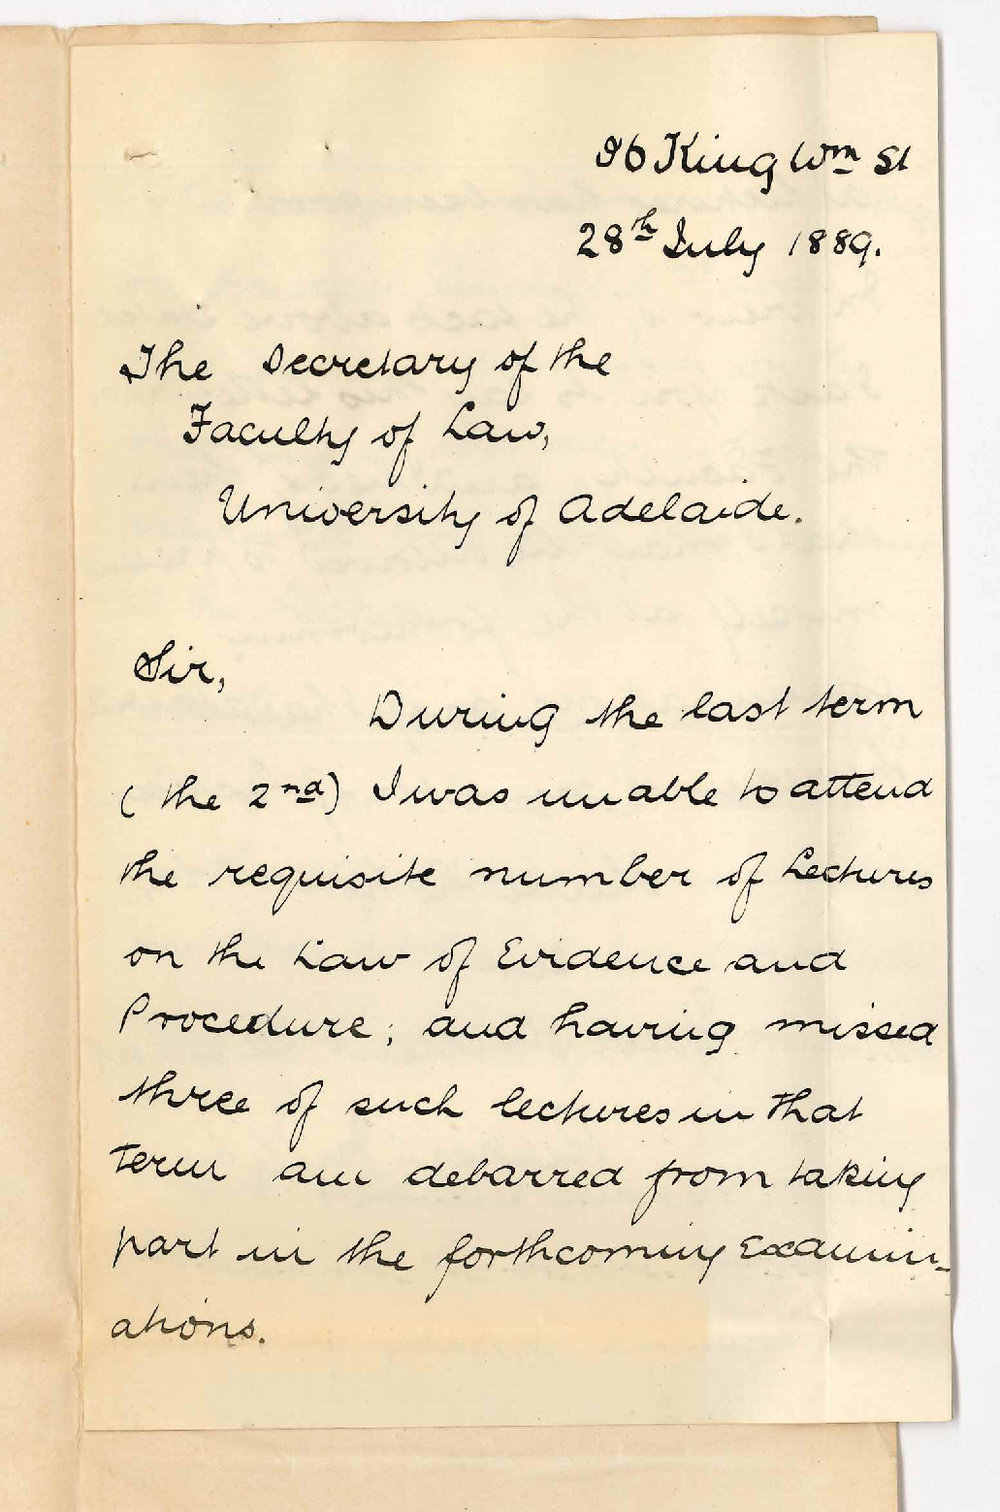 96 King Wm St
28th July 1889.
The Secretary of the
Faculty of Law,
University of Adelaide.
Sir,
During the last term
( the 2nd) I was unable to attend
the requisite number of Lectures
on the Law of Evidence and
Procedure; and having missed
three of such lectures in that
term am debarred from taking
part in the forthcoming Examin-
ations.